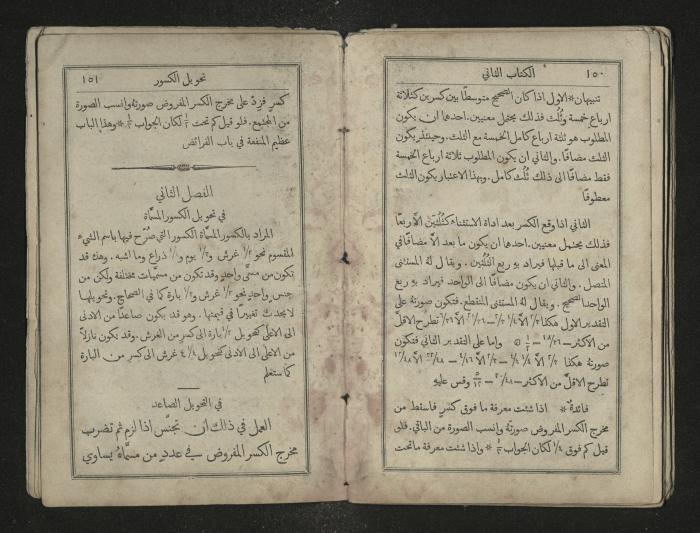 ١٥٠ الكتاب الثاني
تنبيهان * الاول اذا كان الصحيح متوسطًا بين كسرين كثلاثة
ارباع خمسة وثُلُث فذلك يحتمل معنيين. احدهما ان يكون
المطلوب هو ثلثة ارباع كامل الخمسة مع الثلث. وحينئذٍ يكون
الثلث مضافًا. والثاني ان يكون المطلوب ثلاثة ارباع الخمسة
فقط مضافًا الى ذلك ثُلُث كامل. وبهذا الاعتبار يكون الثلث
معطوفًا
الثاني اذا وقع الكسر بعد اداة الاستثناء كثُلُثَين الَّا ربعًا
فذلك يحتمل معنيين. احدهما ان يكون ما بعد الَّا مضافًا في
المعنى الى ما قبلها فيراد به ربع الثُلُثَين. ويقال له المستثنى
المتصل. والثاني ان يكون مضافًا الى الواحد فيراد به ربع
الواحد الصحيح. ويقال له المستثنى المنقطع. فتكون صورتهُ على
التقدير الاول هكذا تطرح الاقلّ
من الاكثر واما على التقدير الثاني فتكون
صورتهُ هكذا
تطرح الاقلَّ من الاكثر وقس عليهِ
فائدة * اذا شئت معرفة ما فوق كسرٍ فاسقط من
مخرج الكسر المفروض صورتهُ وانسب الصورة من الباقي. فلو
قيل كم فوق ١/٤ لكان الجواب ١/٣ * واذا شئت معرفة ما تحت
تحويل الكسور ١٥١
كسرٍ فزِدْ على مخرج الكسر المفروض صورتهُ وانسب الصورة
من المجتمع. فلو قيل كم تحت لكان الجواب * وهذا الباب
عظيم المنفعة في باب الفرائض
الفصل الثاني
في تحويل الكسور المسمَّاة
المراد بالكسور المسمَّاة الكسور التي صُرِّح فيها باسم الشيء
المقسوم نحو ١/٢ غرش و يوم و ذراع وما اشبه. وهذه قد
تكون من مسمًّى واحدٍ وقد تكون من مسمَّيات مختلفة ولكن من
جنس واحدٍ نحو غرش و بارة كما في الصحاح. وتحويلها
لا يحدث تغييرًا في قيمتها. وهو قد يكون صاعدًا من الادنى
الى الاعلى كتحويل بارة الى كسرٍ من الغرش. وقد يكون نازلًا
من الاعلى الى الادنى كتحويل غرش الى كسر من البارة
كما ستعلم
في التحويل الصاعد
العمل في ذلك ان تجنّس اذا لزم ثم تضرب
مخرج الكسر المفروض في عددٍ من مسمَّاهُ يساوي